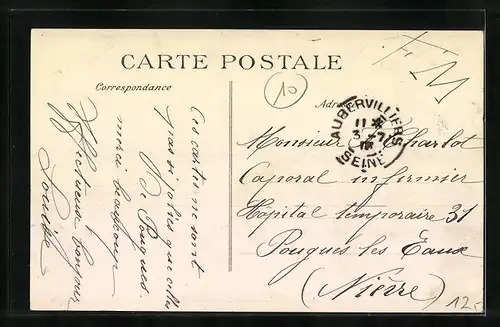 CARTE POSTALE
Correspondance
10
F. M
Ces cartes ne sont
pas si jolies que celles
de Pougues.
merci beaucoup
Affectueux bonjour
Louise
AUBERVILLIERS
11
3 -7
(SEINE)
Monsieur Charlot
Caporal infirmier
Hôpital temporaire 31
Pougues les Eaux
(Nièvre)
12,-